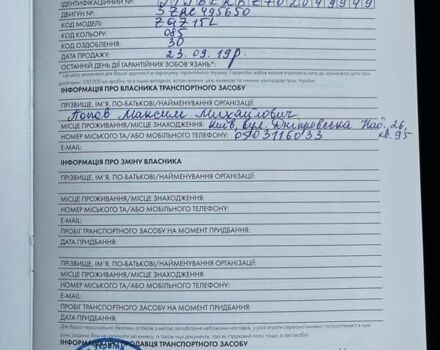 ІДЕНТИФІКАЦІЙНИЙ №:
ДВИГУН №: 5ZRC495650
КОД МОДЕЛІ: ZGZ15L
КОД КОЛЬОРУ: 085
КОД ОЗДОБЛЕННЯ: 30
ДАТА ПРОДАЖУ: 23.09.19р.
ОСТАННІЙ ДЕНЬ ДІЇ ГАРАНТІЙНИХ ЗОБОВ'ЯЗАНЬ*:
ІНФОРМАЦІЯ ПРО ВЛАСНИКА ТРАНСПОРТНОГО ЗАСОБУ
ПРІЗВИЩЕ, ІМ'Я, ПО-БАТЬКОВІ/НАЙМЕНУВАННЯ ОРГАНІЗАЦІЇ:
Попов Максим Михайлович
МІСЦЕ ПРОЖИВАННЯ/МІСЦЕ ЗНАХОДЖЕННЯ: Київ, вул. Дніпровська Наб. 26,
НОМЕР МІСЬКОГО ТА/АБО МОБІЛЬНОГО ТЕЛЕФОНУ: 0503116033 кв. 95
E-MAIL:
ІНФОРМАЦІЯ ПРО ЗМІНУ ВЛАСНИКА
ПРІЗВИЩЕ, ІМ'Я, ПО-БАТЬКОВІ/НАЙМЕНУВАННЯ ОРГАНІЗАЦІЇ:
МІСЦЕ ПРОЖИВАННЯ/МІСЦЕ ЗНАХОДЖЕННЯ:
НОМЕР МІСЬКОГО ТА/АБО МОБІЛЬНОГО ТЕЛЕФОНУ:
E-MAIL:
ПРОБІГ ТРАНСПОРТНОГО ЗАСОБУ НА МОМЕНТ ПРИДБАННЯ:
ДАТА ПРИДБАННЯ:
ПРІЗВИЩЕ, ІМ'Я, ПО-БАТЬКОВІ/НАЙМЕНУВАННЯ ОРГАНІЗАЦІЇ:
МІСЦЕ ПРОЖИВАННЯ/МІСЦЕ ЗНАХОДЖЕННЯ:
НОМЕР МІСЬКОГО ТА/АБО МОБІЛЬНОГО ТЕЛЕФОНУ:
E-MAIL:
ПРОБІГ ТРАНСПОРТНОГО ЗАСОБУ НА МОМЕНТ ПРИДБАННЯ:
ДАТА ПРИДБАННЯ:
ІНФОРМАЦІЯ ПРОДАВЦЯ ТРАНСПОРТНОГО ЗАСОБУ